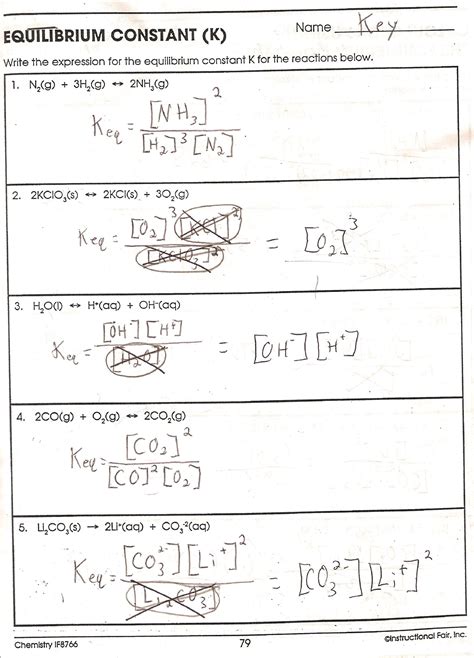 EQUILIBRIUM CONSTANT (K)
Name Key
Write the expression for the equilibrium constant K for the reactions below.
1. N₂(g) + 3H₂(g) ↔ 2NH₃(g)
Keq = [NH₃]² / [H₂]³ [N₂]
2. 2KClO₃(s) ↔ 2KCl(s) + 3O₂(g)
Keq = [O₂]³ [KCl]² / [KClO₃]² = [O₂]³
3. H₂O(l) ↔ H⁺(aq) + OH⁻(aq)
Keq = [OH⁻] [H⁺] / [H₂O] = [OH⁻] [H⁺]
4. 2CO(g) + O₂(g) ↔ 2CO₂(g)
Keq = [CO₂]² / [CO]² [O₂]
5. Li₂CO₃(s) → 2Li⁺(aq) + CO₃⁻²(aq)
Keq = [CO₃²⁻] [Li⁺]² / [Li₂CO₃] = [CO₃²⁻] [Li⁺]²
Chemistry IF8766
79
©Instructional Fair, Inc.